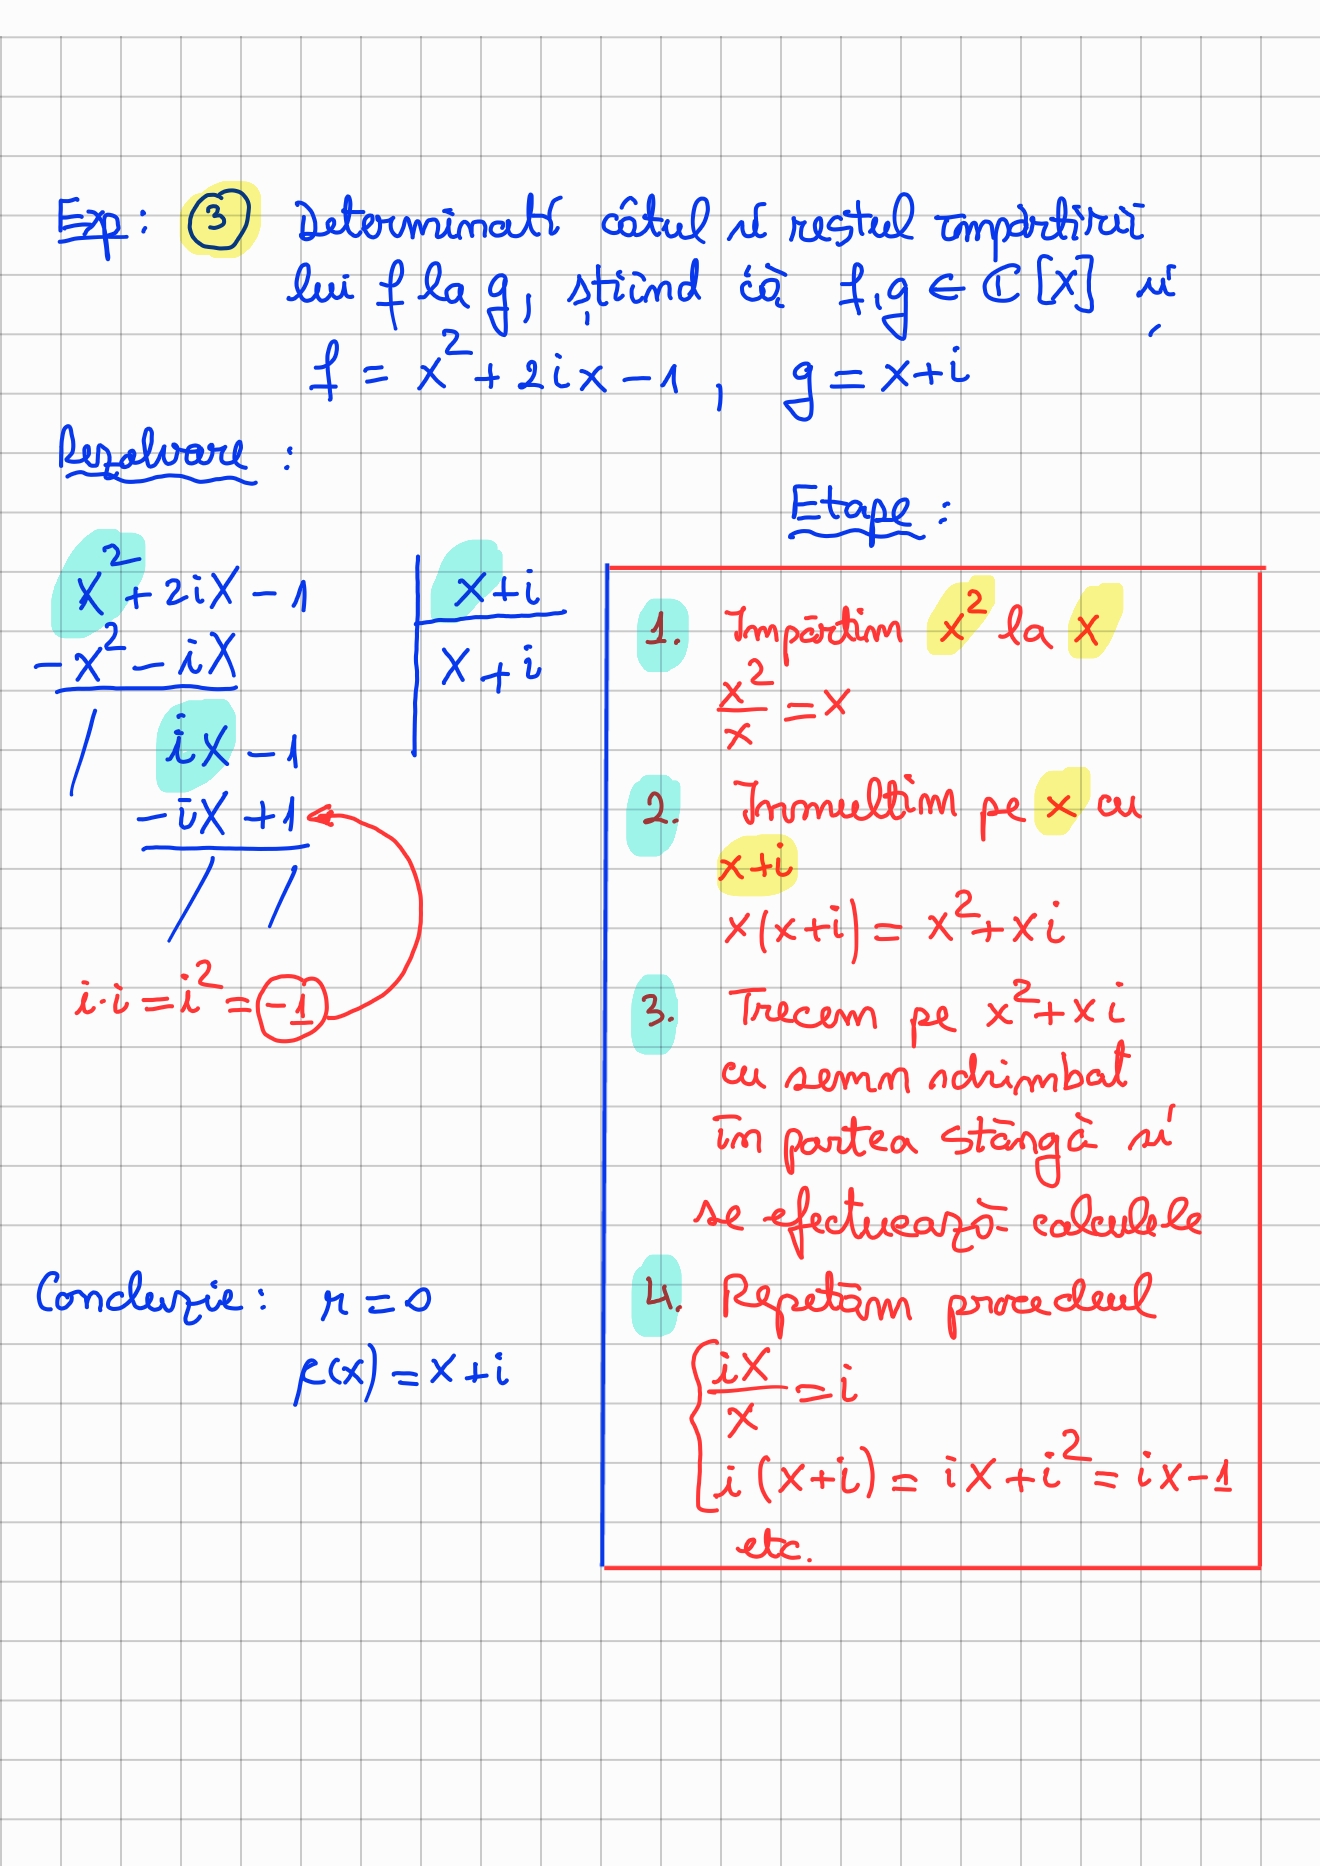 Exp: 3 Determinați câtul și restul împărțirii
lui f la g, știind că f,g ∈ ℂ[X] și
f = x² + 2ix - 1, g = x+i
Rezolvare:
x² + 2iX - 1 | x+i
-x² - iX | X + i
/ iX - 1
-iX + 1
/ /
i·i = i² = -1
Concluzie: r = 0
c(x) = x + i
Etape:
1. Împărțim x² la x
x²/x = x
2. Înmulțim pe x cu
x+i
x(x+i) = x² + xi
3. Trecem pe x² + xi
cu semn schimbat
în partea stângă și
se efectuează calculele
4. Repetăm procedeul
iX/X = i
i(x+i) = iX + i² = ix - 1
etc.